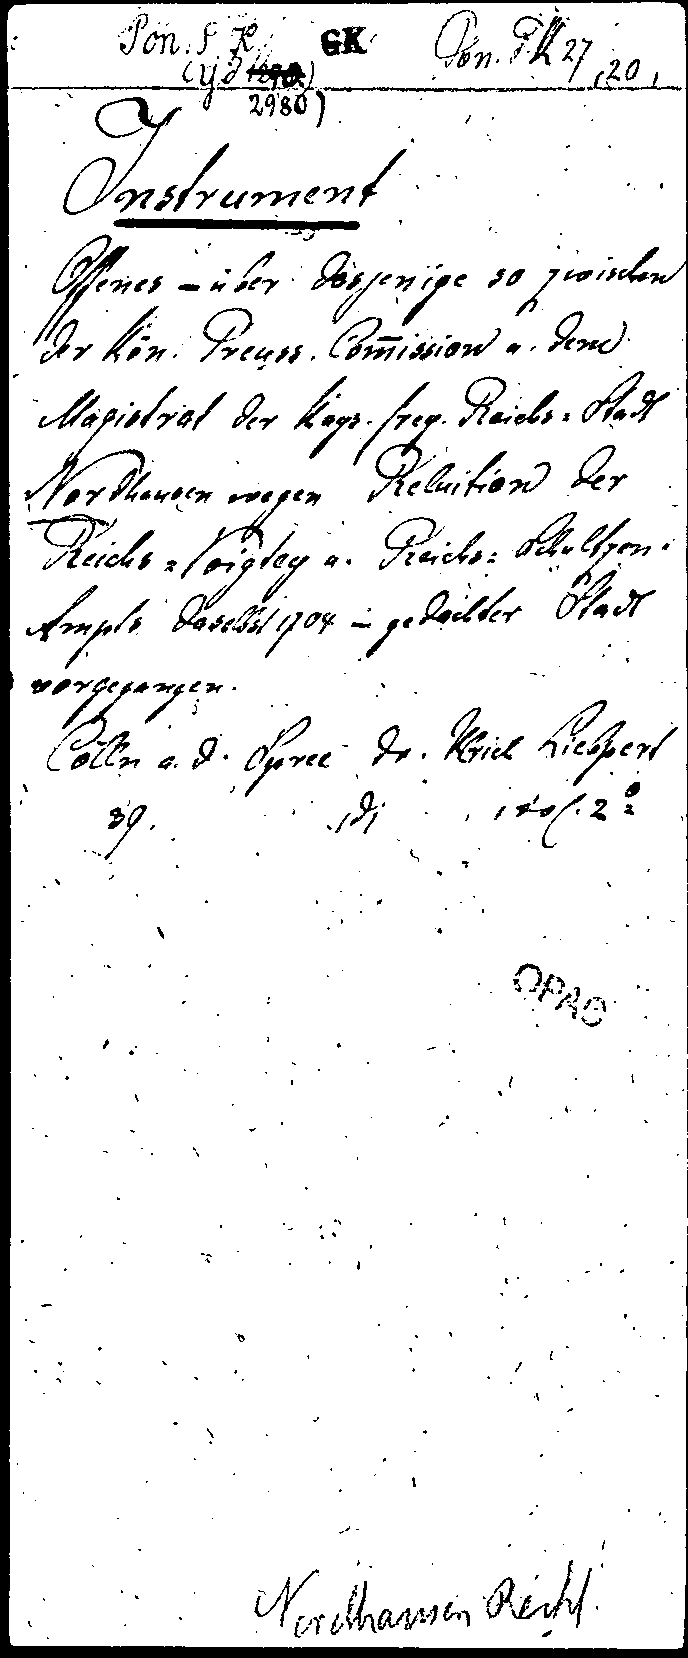 Pon. GK Pon. 27, 20,
(Yd
2980)
Instrument
Offenes – über dasjenige so zwischen
der Kön. Preuss. Com̅ission u. dem
Magistrat der Kays. frey. Reichs=Stadt
Nordhausen wegen Reluition der
Reichs=Voigtey u. Reichs=Schultzen-
Ampts daselbst 1704 – gedachter Stadt
vorgegangen.
Cölln a. d. Spree dr. Ulrich Liebpert
2°
OPAC
Nordhausen Recht.